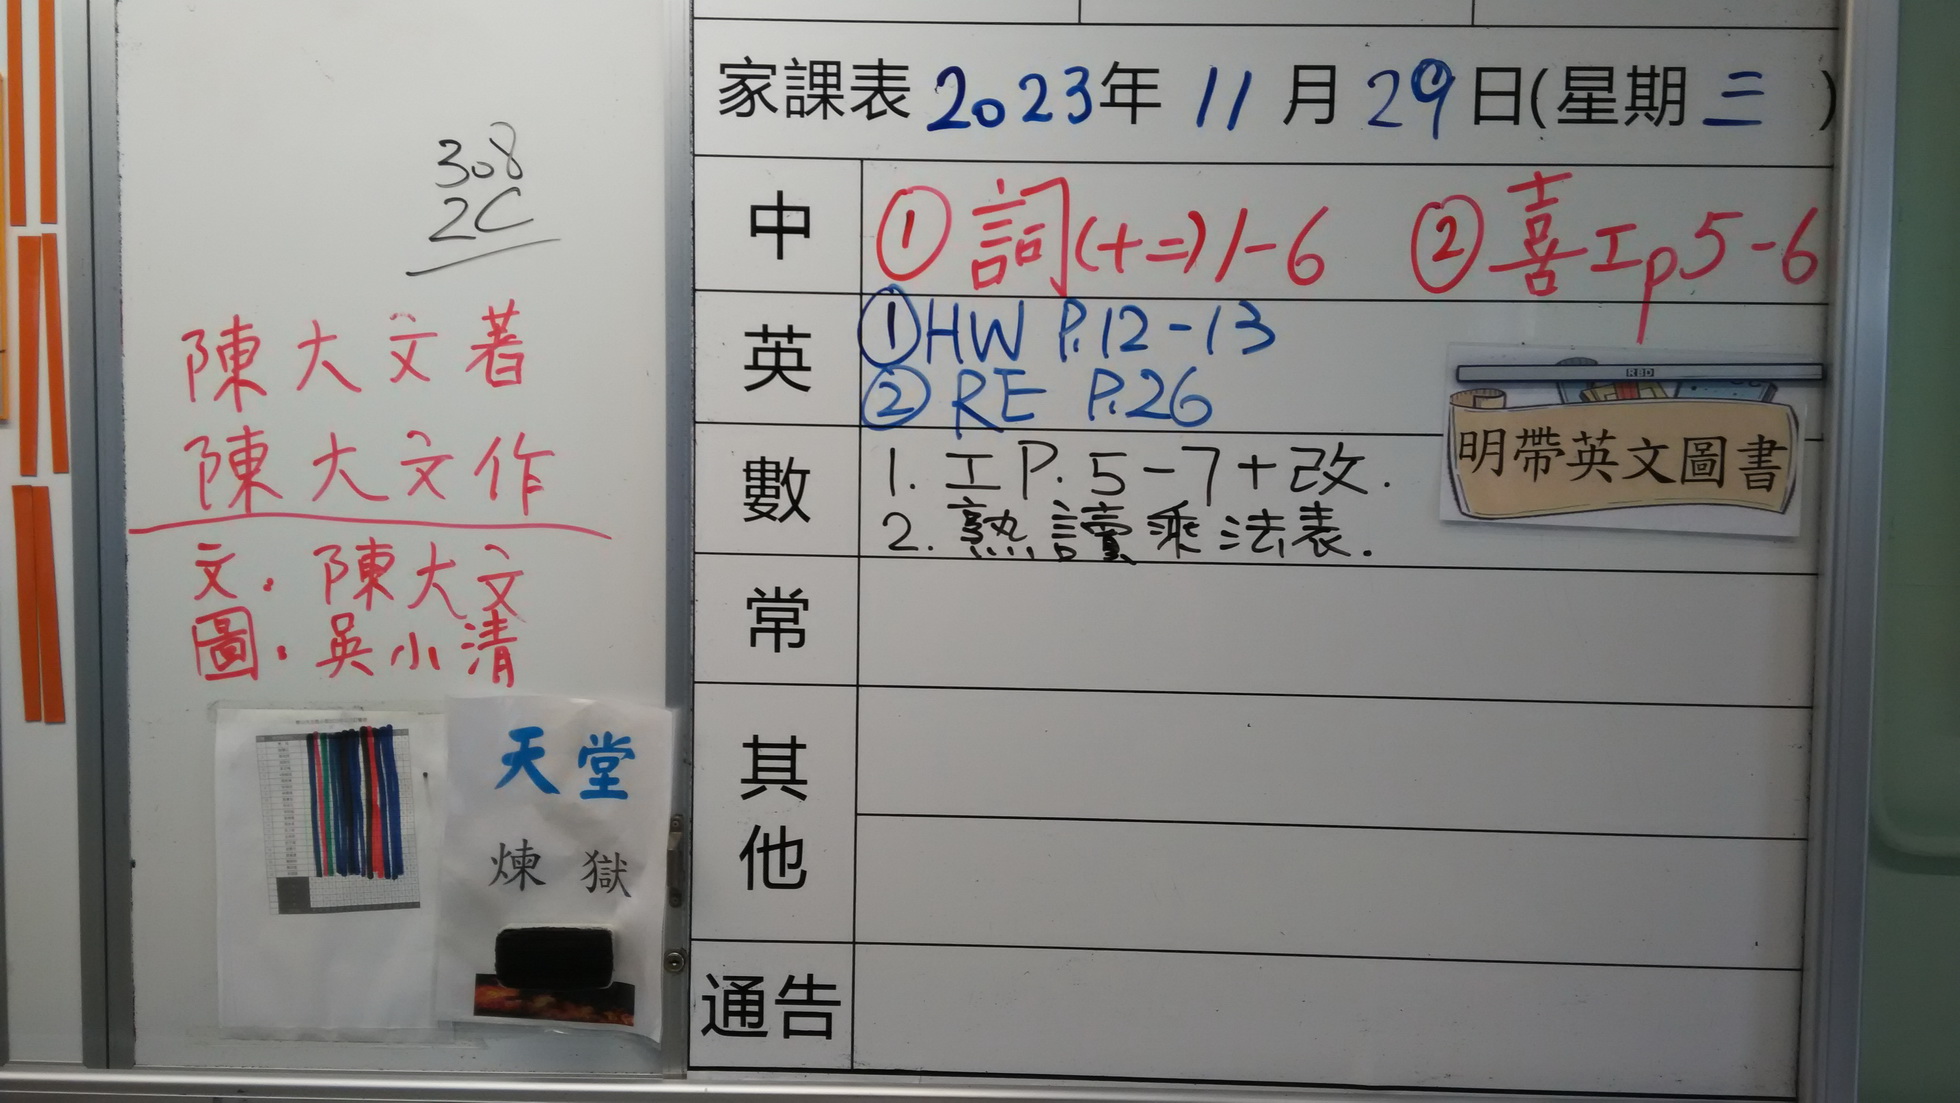 308
2C
陳大文著
陳大文作
文．陳大文
圖．吳小清
天堂
煉獄
家課表 2023年 11月 29日(星期三)
中
① 詞(十二)1-6 ② 喜工p5-6
英
① HW P.12-13
② RE P.26
RED
明帶英文圖書
數
1. 工P.5-7+改.
2. 熟讀乘法表.
常
其他
通告